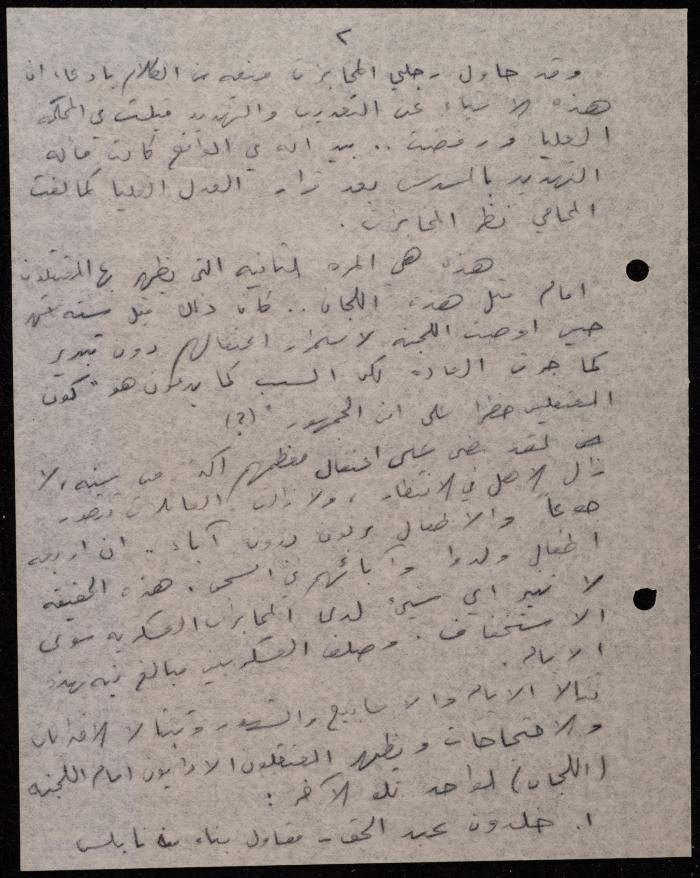 ٢
وقد حاول رجلي المخابرات منعه من الكلام بادعاء ان
هذه الاشياء عن التعذيب والتهديد قيلت في المحكمة
العليا ورفضت .. بيد انه في الواقع كانت حالة
التهديد بالمسدس بعد قرار العدل العليا كما لفت
المحامي نظر المخابرات .
هذه هي المرة الثانية التي يظهر بها المعتقلون
امام مثل هذه اللجان .. كان ذلك قبل ستة اشهر
حين اوصت اللجنة لاستمرار اعتقالهم دون تبرير
كما جرت العادة لكن السبب كما يدعون هو " كون
المعتقلين خطرا على امن الجمهور " (؟)
لقد مضى على اعتقال معظمهم اكثر من سنة ، لا
زال الاهل في الانتظار ، ولا زالت العائلات تتضور
جوعاً والاطفال يولدون بدون آباء .. ان اربعة
اطفال ولدوا وآبائهم في السجن . هذه الحقيقة
لا تثير اي شيئ لدى المخابرات العسكرية سوى
الاستخفاف . وصلف العسكريين مبالغ فيه بهذه
الايام .
تتالا الايام والاسابيع والشهور وتتالا الاضرابات
والاحتجاجات ويظهر المعتقلون الاداريون امام اللجنة
(اللجان) الواحد تلو الآخر :
١. خلدون عبد الحق - مقاول بناء من نابلس